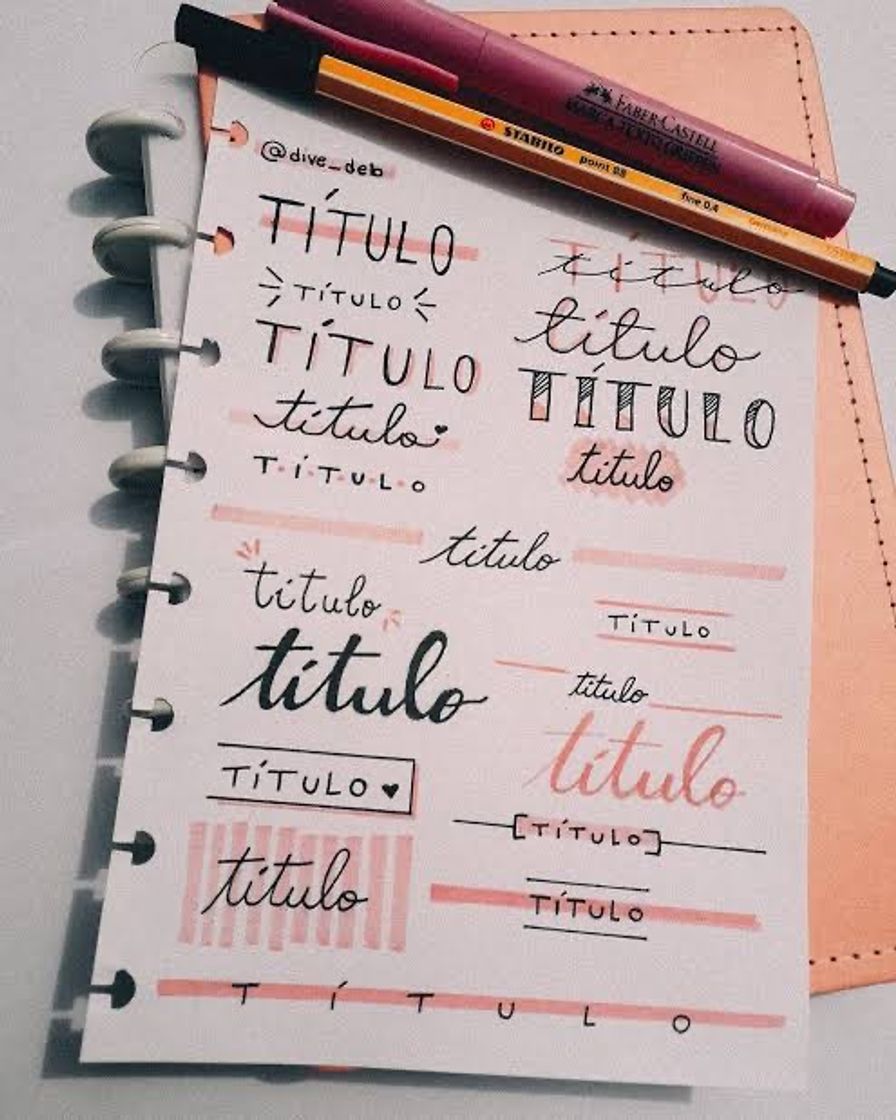 FABER-CASTELL
STABILO point 88 fine 0.4 Germany
@dive_deb
TÍTULO
TÍTULO
título
TÍTULO
TÍTULO
título
título
TÍTULO
TÍTULO
título
título
título
TÍTULO
título
título
título
TÍTULO
TÍTULO
título
TÍTULO
TÍTULO